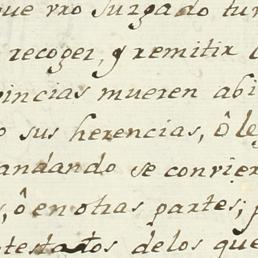 que vro Juzgado tu
recoger, y remitir
vincias mueren abi
o sus herencias, ô le
andando se convier
s, ô en otras partes; p
testados delos que